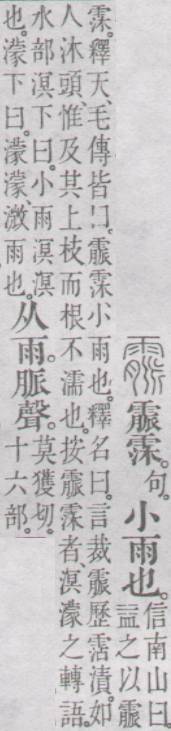 霢霂。句。小雨也。信南山曰。
益之以霢
霂。釋天、毛傳皆曰。霢霂、小雨也。釋名曰。言裁霢歷霑漬。如
人沐頭、惟及其上枝而根不濡也。按霢霂者、溟濛之轉語。
水部溟下曰。小雨溟溟
也。濛下曰。濛濛、溦雨也。从雨。脈聲。莫獲切。
十六部。